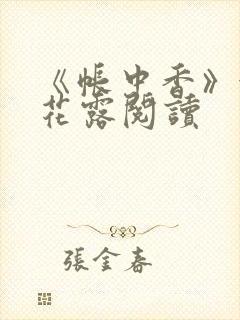 《帳中香》
花露閱讀
張金春